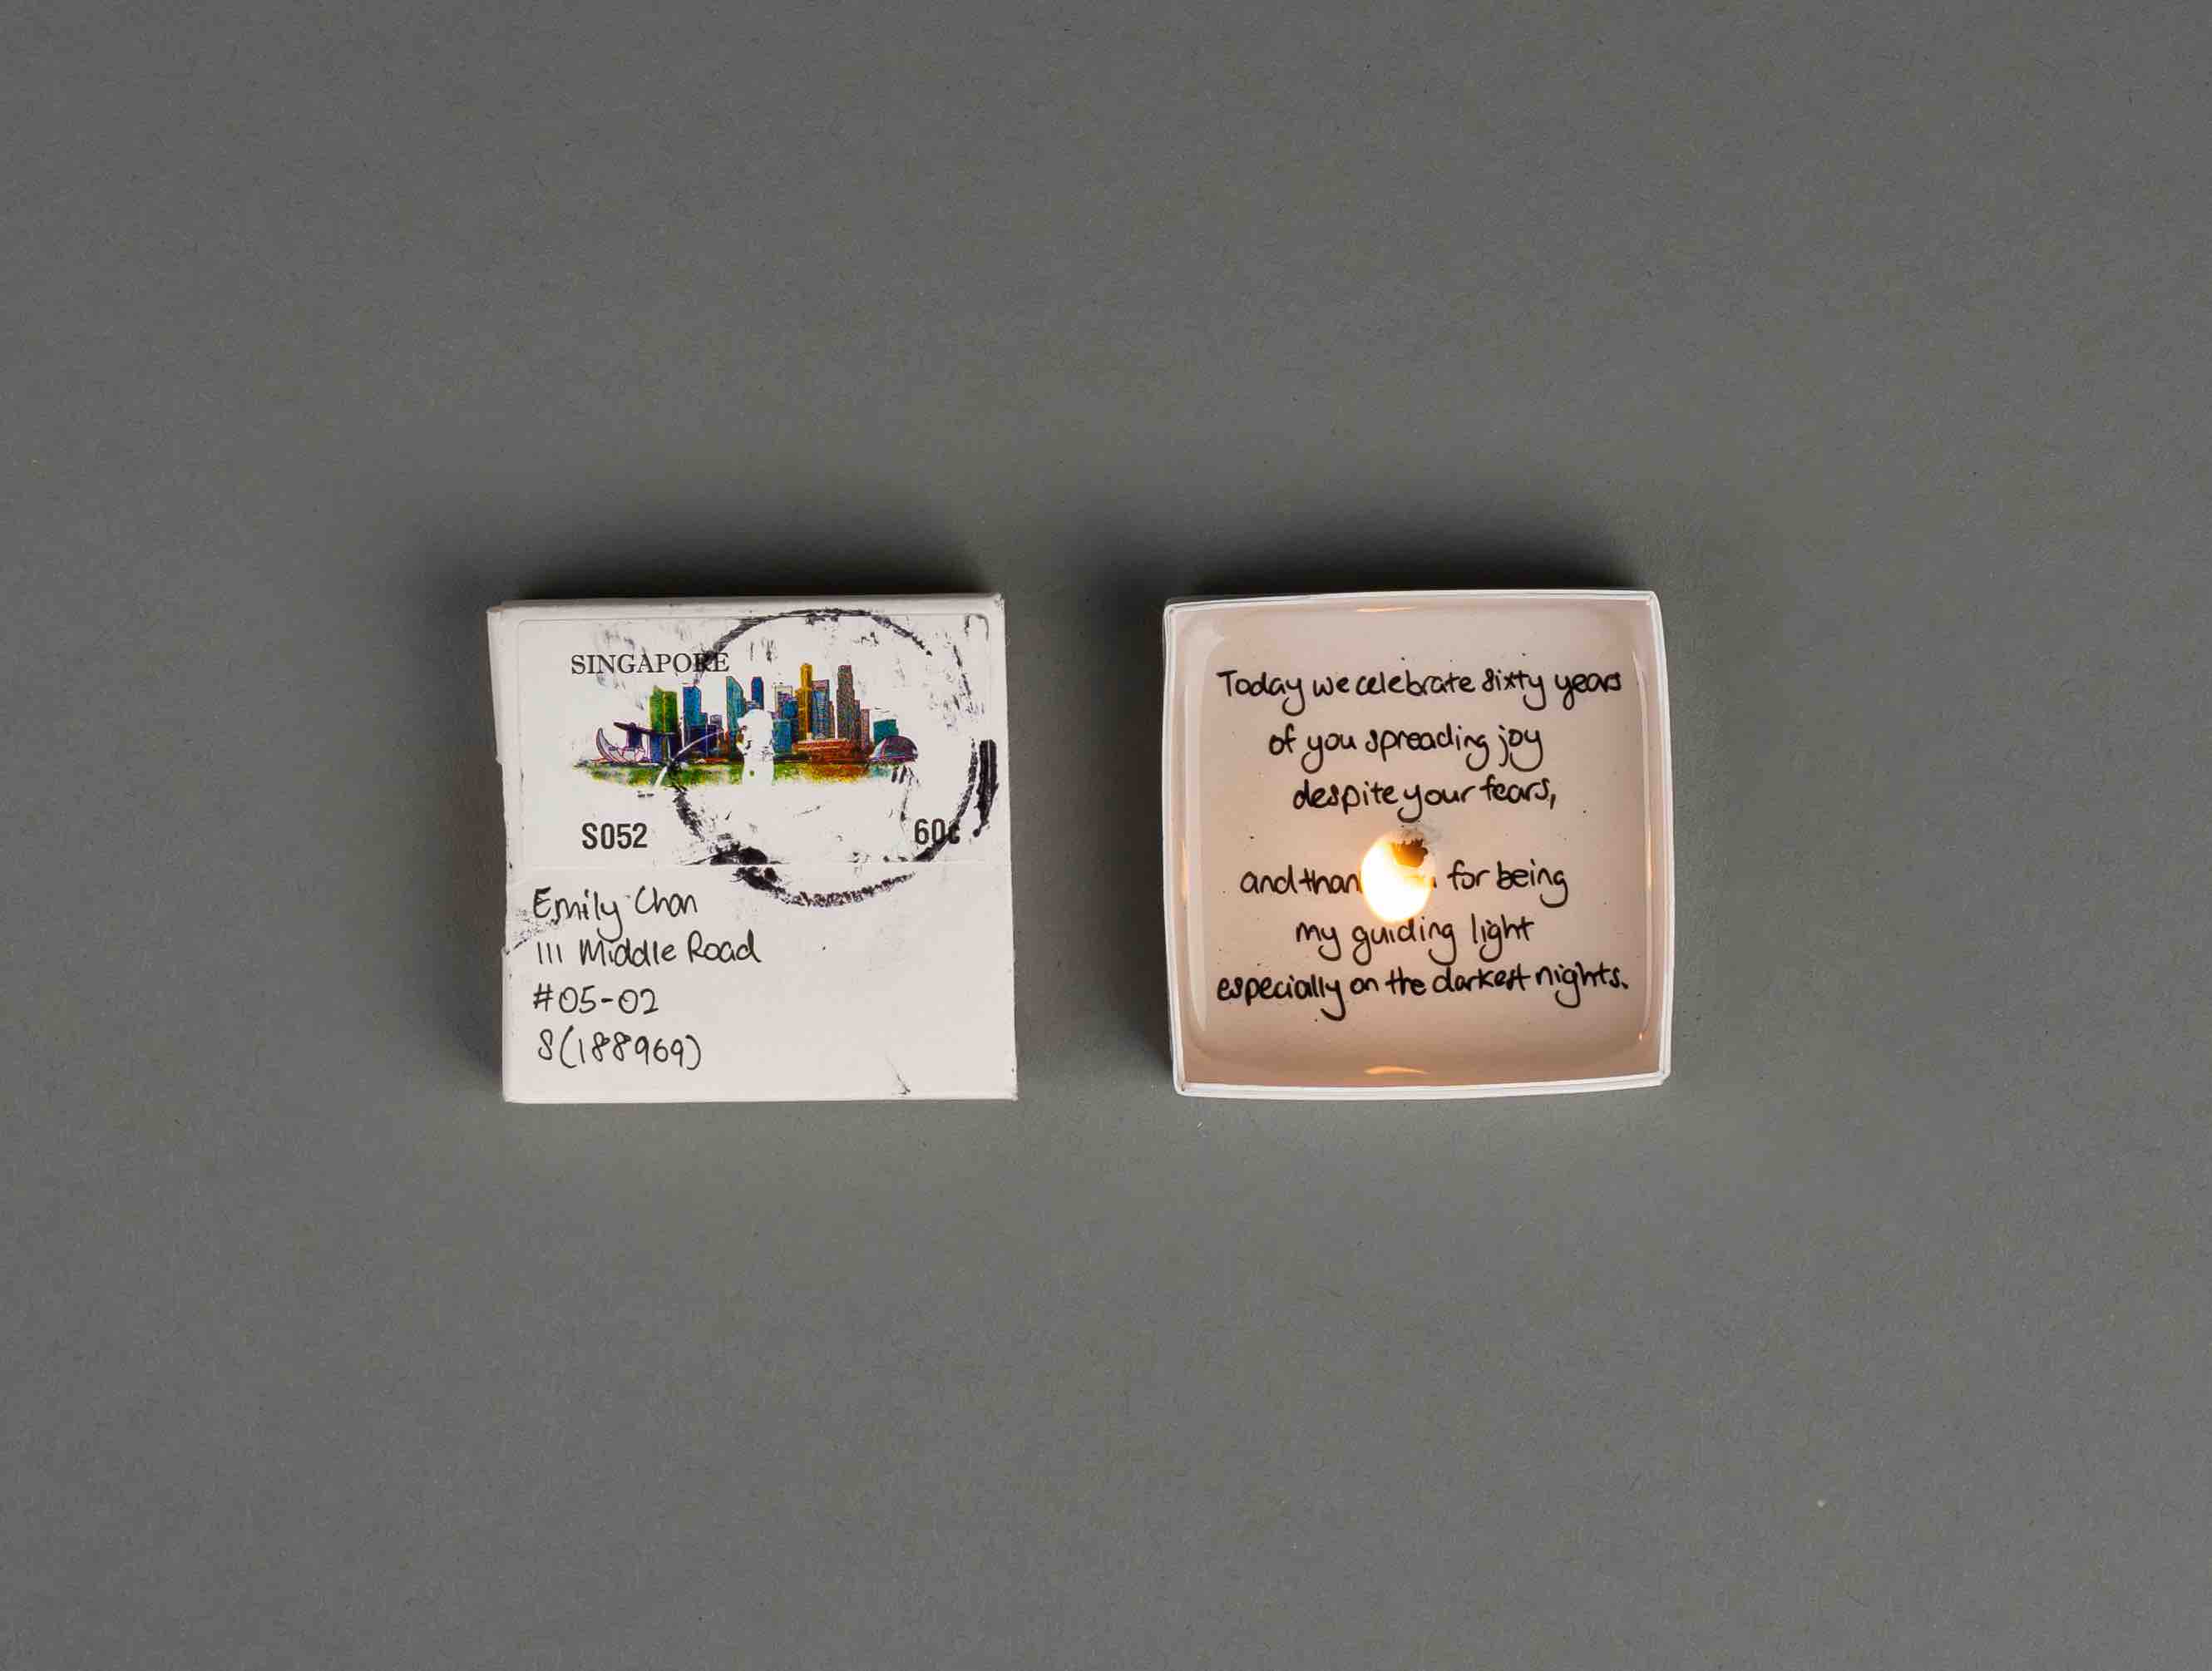 SINGAPORE
S052 60¢
Emily Chan
111 Middle Road
#05-02
S(188969)
Today we celebrate sixty years
of you spreading joy
despite your fears,
and for being
my guiding light
especially on the darkest nights.